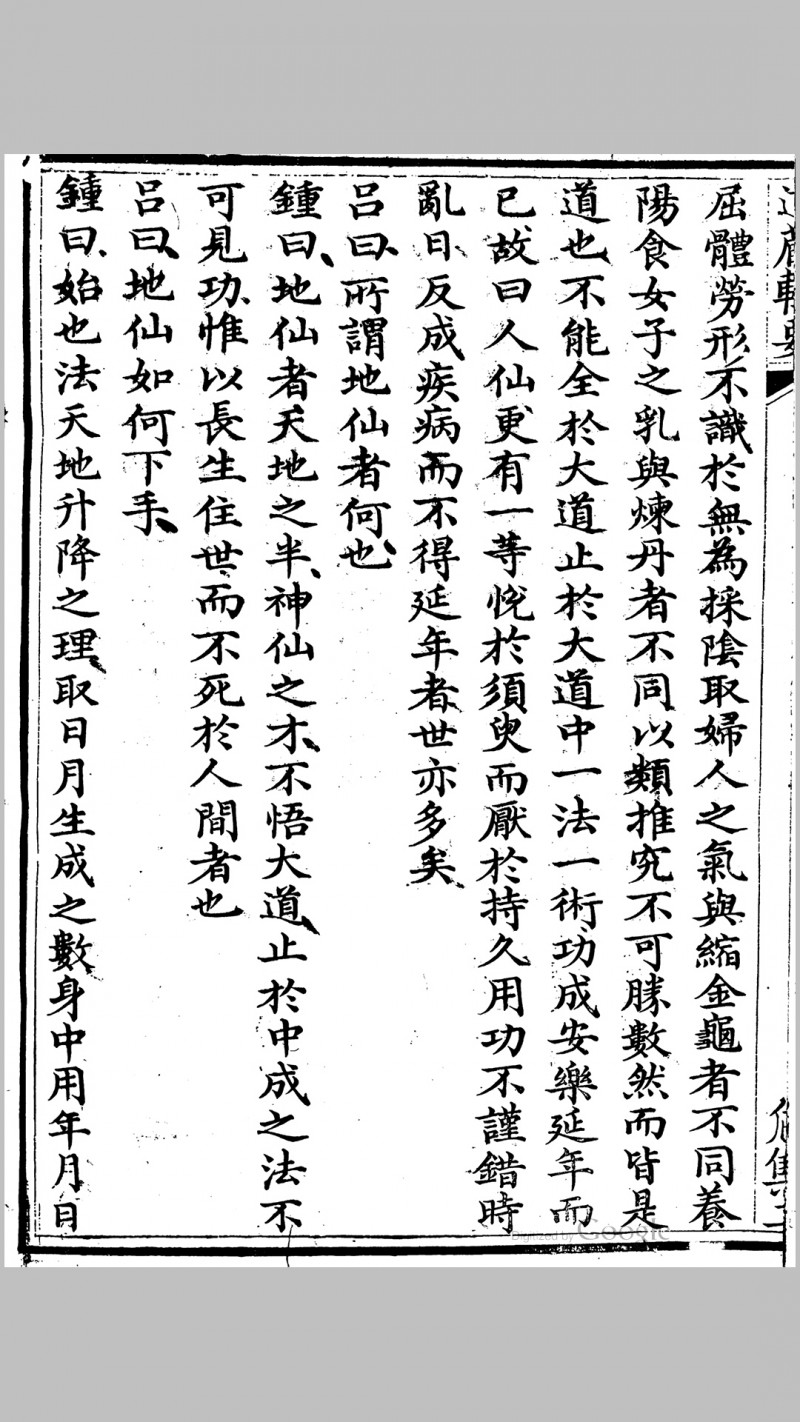 道藏輯要
屈體勞形不識於無為採陰取婦人之氣與縮金龜者不同養
陽食女子之乳與煉丹者不同以類推究不可勝數然而皆是
道也不能全於大道止於大道中一法一術功成安樂延年而
已故曰人仙更有一等悅於須臾而厭於持久用功不謹錯時
亂日反成疾病而不得延年者世亦多矣
呂曰所謂地仙者何也
鍾曰地仙者天地之半神仙之才不悟大道止於中成之法不
可見功惟以長生住世而不死於人間者也
呂曰地仙如何下手
鍾曰始也法天地升降之理取日月生成之數身中用年月日
Digitized by Google